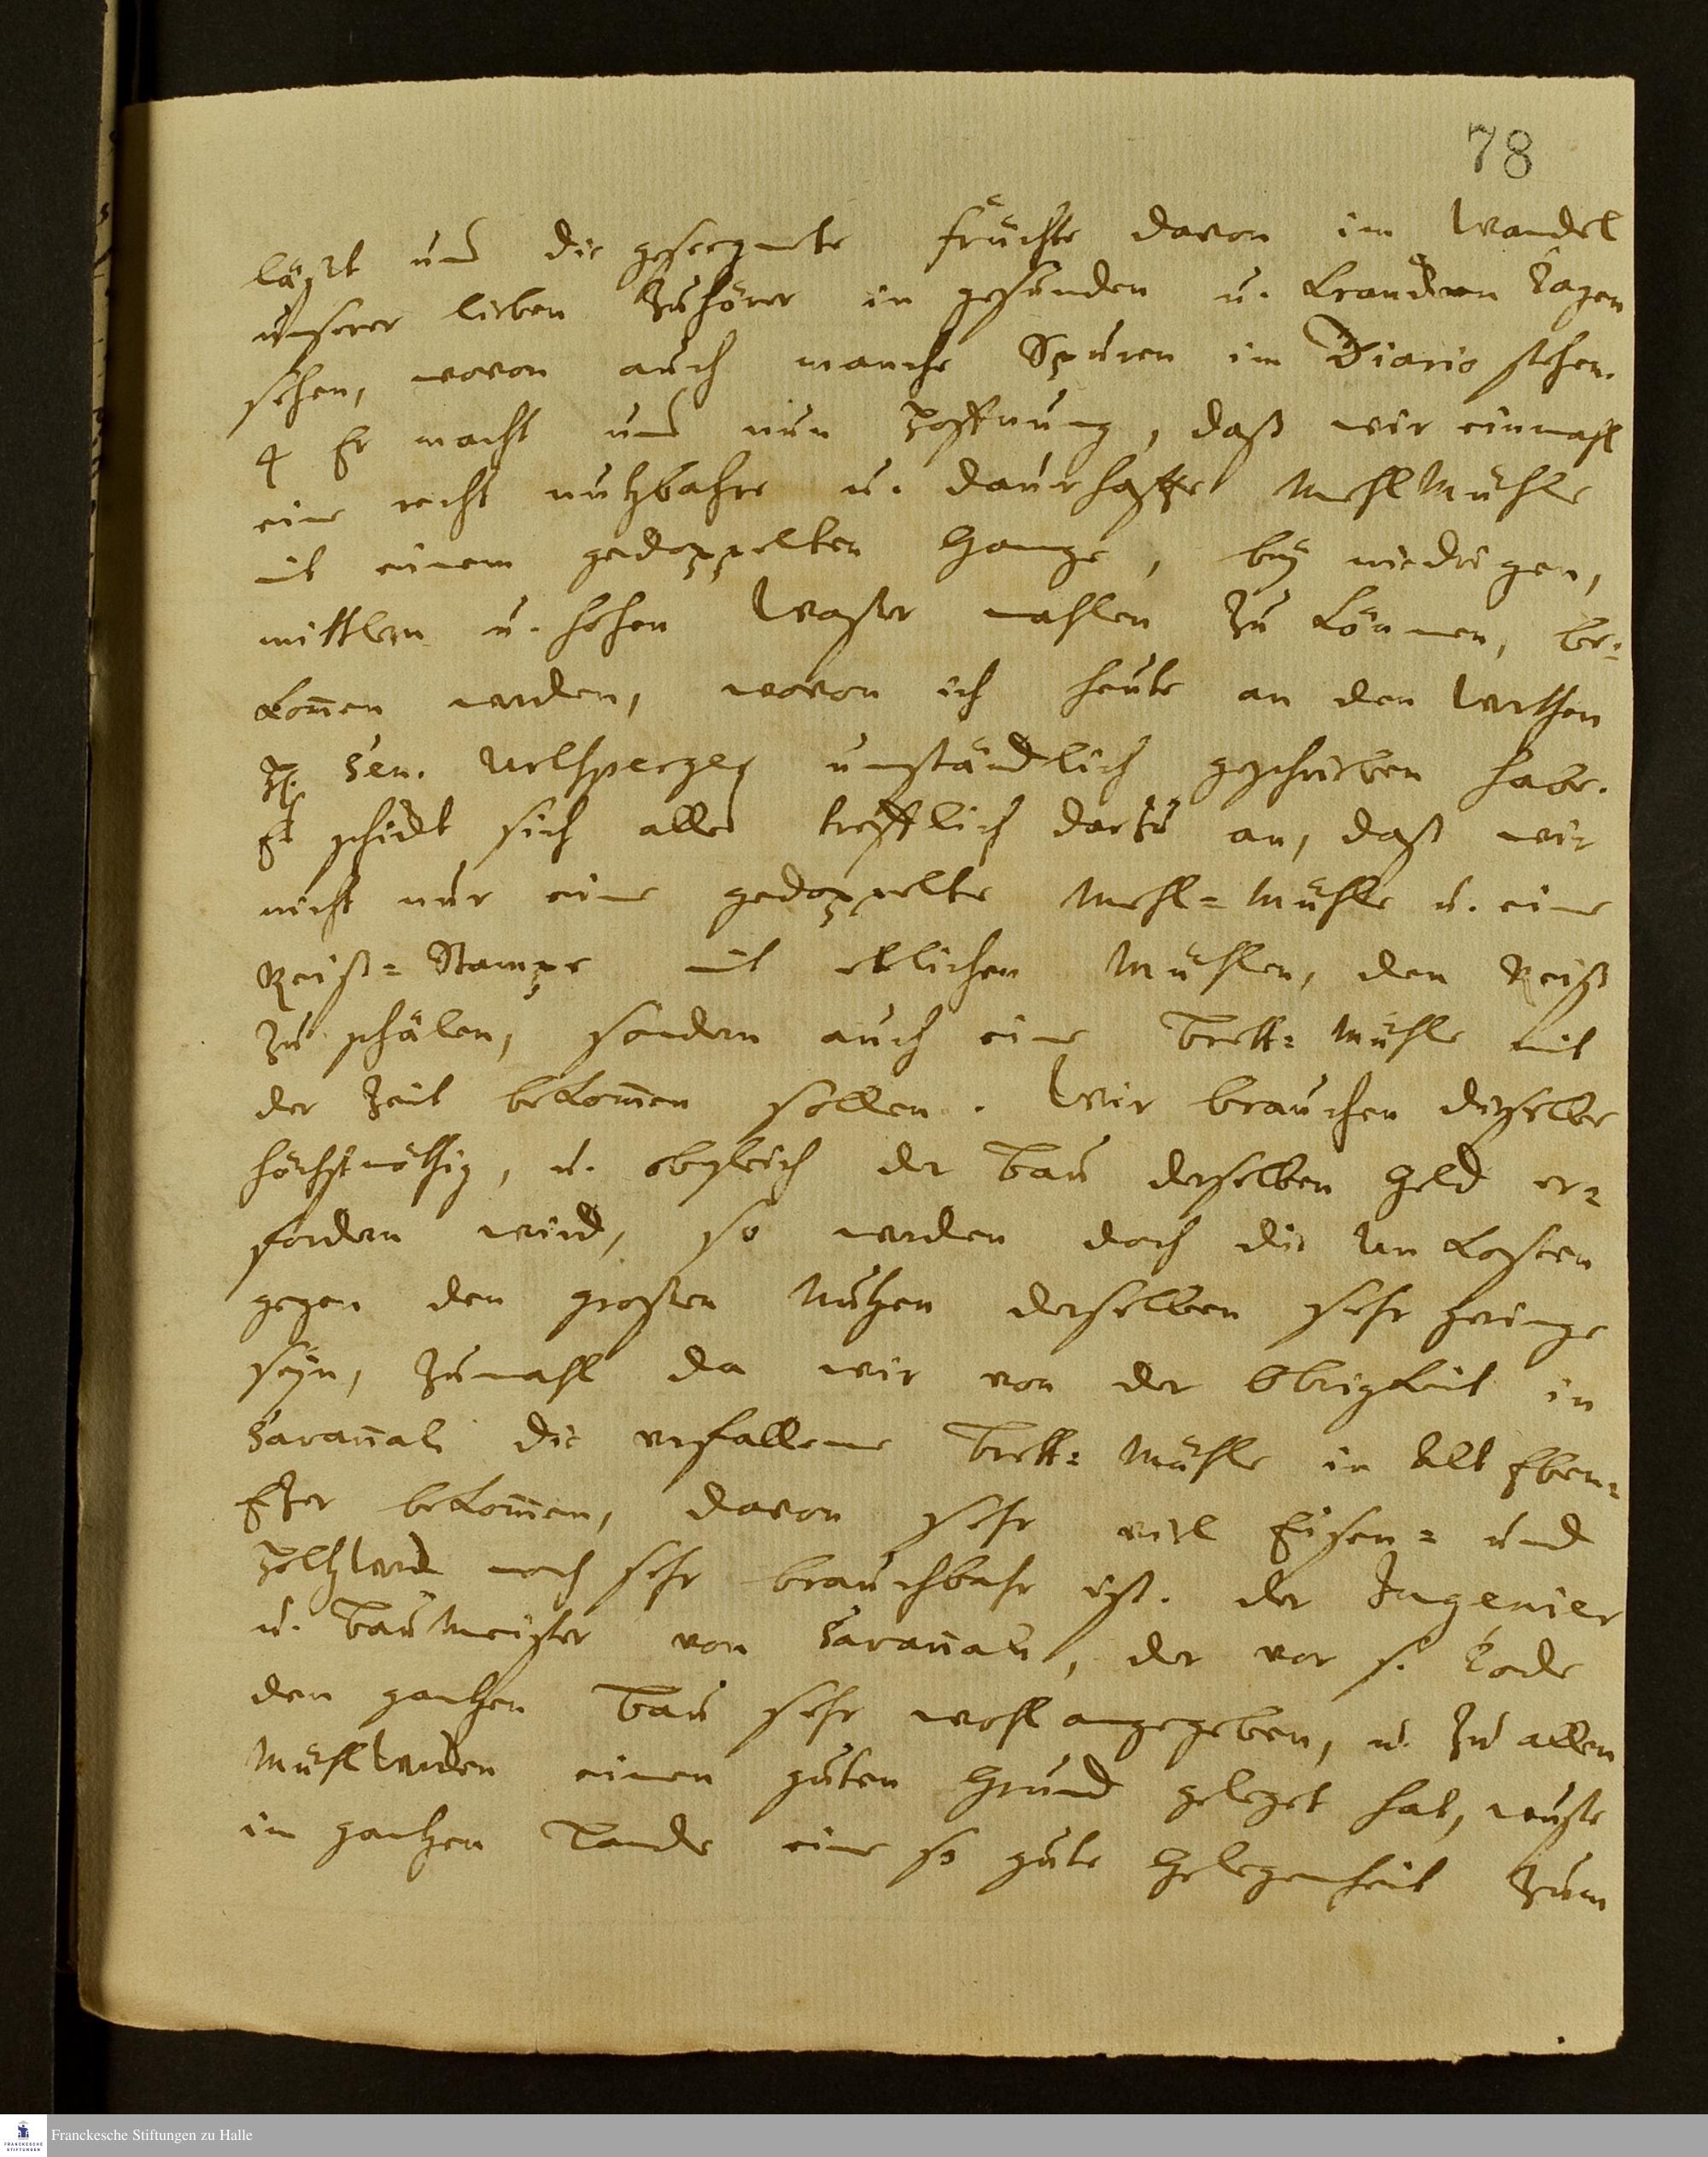 78
läßt uns die geseegnete Früchte davon im Wandel
unserer lieben Zuhörer in gesunden u. krancken Tagen
sehen, wovon auch manche Spuren im Diario stehen.
4 Er macht uns nun Hoffnung, daß wir einmahl
eine recht nutzbahre u. daurhaffte MehlMühle
mit einem gedoppelten Gange, bey niedrigen,
mittlern u. hohen Waßer mahlen zu können, be-
kom̅en werden, wovon ich heute an den Werthen
H. Sen. Urlsperger umständlich geschrieben habe.
Es schickt sich alles trefflich dartzu an, daß wir
nicht nur eine gedoppelte Mehl-Mühle u. eine
Reiß-Stampe mit etlichen Mühlen, den Reiß
zu schälen, sondern auch eine Brett-Mühle mit
der Zeit bekom̅en sollen. Wir brauchen dieselbe
höchstnöthig, u. obgleich der Bau derselben Geld er-
fordern wird, so werden doch die Unkosten
gegen den großen Nutzen derselben sehr geringe
seyn, zumahl da wir von der Obrigkeit in
Savan̅ah die verfallene Brett-Mühle in Alt Eben-
Ezer bekom̅en, davon sehr viel Eisen- und
Holtzwerck noch sehr brauchbahr ist. Der Ingenier
u. Baumeister von Savan̅ah, der vor s. Tode
den gantzen Bau sehr wohl angegeben, u. zu allen
Mühlwercken einen guten Grund geleget hat, wuste
im gantzen Lande eine so gute Gelegenheit zum
Franckesche Stiftungen zu Halle
FRANCKESCHE
STIFTUNGEN